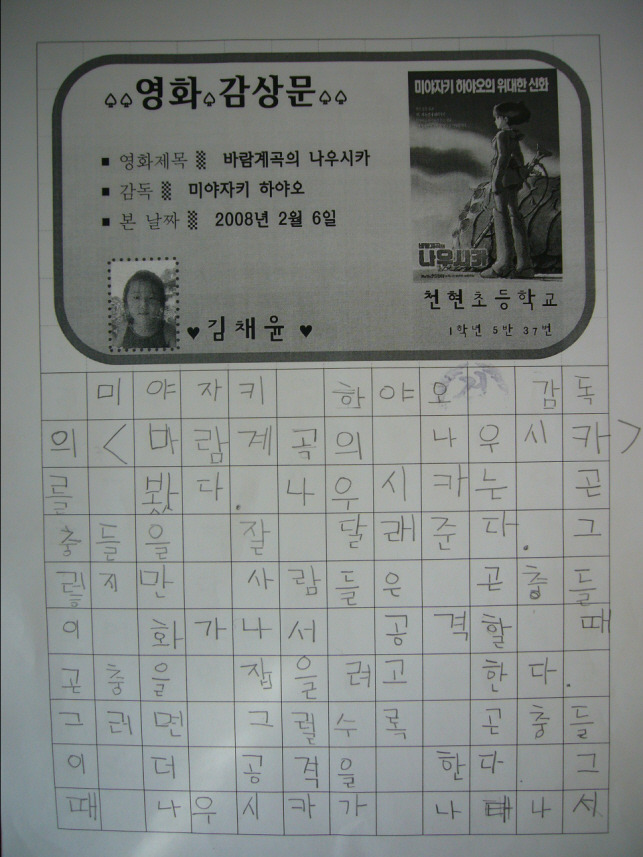 영화 감상문
미야자키 하야오의 위대한 신화
영화제목 바람계곡의 나우시카
감독 미야자키 하야오
본 날짜 2008년 2월 6일
나우시카
천현초등학교
1학년 5반 37번
김채윤
미야자키 하야오 감독
의 <바람계곡의 나우시카>
를 봤다. 나우시카는 곤
충들을 잘 달래준다. 그
렇지만 사람들은 곤충들
이 화가나서 공격할 때
곤충을 잡을려고 한다.
그러면 그럴수록 곤충들
이 더 공격을 한다. 그
때 나우시카가 나타나서